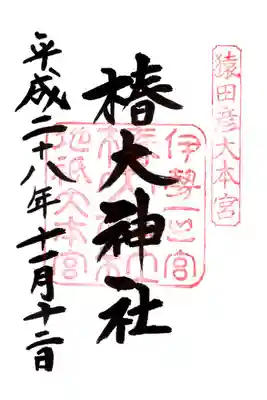 猿田彦大本宮
椿大神社
伊勢一宮
椿大神社
地祇大本宮
平成二十八年十一月十二日